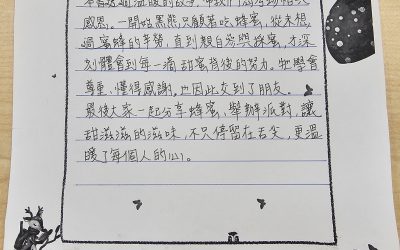 本書是個溫暖的故事,帶我們
感恩。一開始黑熊只顧著吃蜂蜜,從未想
過蜜蜂的辛勞,直到親自參與採蜜,才深
刻體會到每一滴甜蜜背後的努力。牠學會
尊重、懂得感謝,也因此交到了朋友。
最後大家一起分享蜂蜜,舉辦派對,讓
甜滋滋的滋味,不只停留在舌尖,更溫
暖了每個人的心。